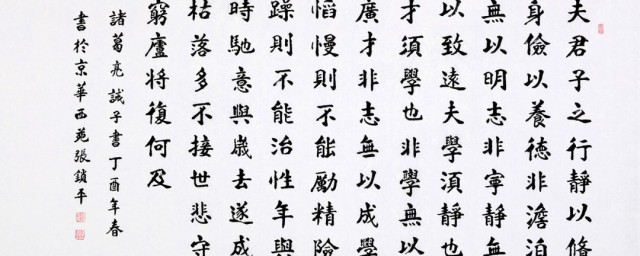 夫君子之行靜以脩
身儉以養德非澹泊
無以明志非寧靜無
以致遠夫學須靜也
才須學也非學無以
廣才非志無以成學
慆慢則不能勵精險
躁則不能治性年與
時馳意與歲去遂成
枯落多不接世悲守
窮廬將復何及
諸葛亮誡子書丁酉年春
書於京華西苑張鎖平